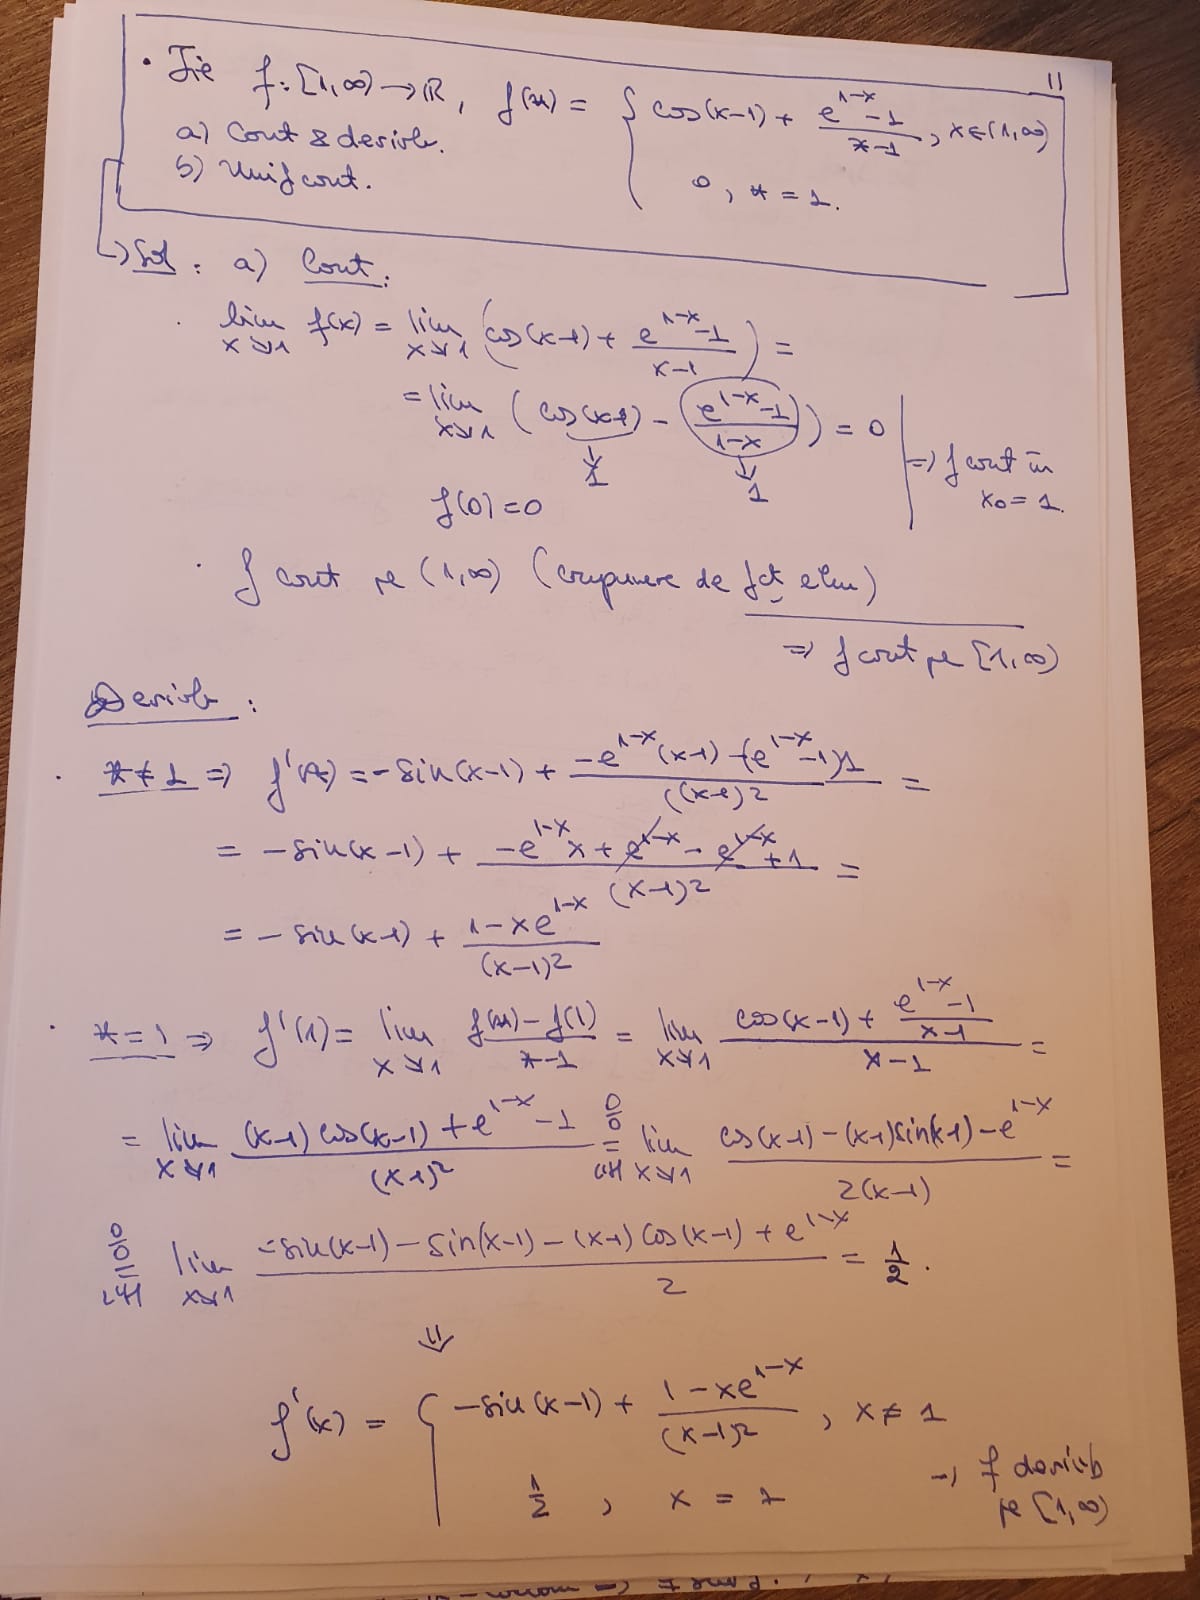 11
• Fie f: [1,∞) → ℝ, f(x) = { cos(x-1) + (e^{1-x} - 1)/(x-1), x ∈ (1,∞)
0, x = 1.
a) Cont & derivb.
b) Unif cont.
→ Sol: a) Cont:
• lim_{x↘1} f(x) = lim_{x↘1} (cos(x-1) + (e^{1-x} - 1)/(x-1)) =
= lim_{x↘1} (cos(x-1) - (e^{1-x} - 1)/(1-x)) = 0
↓ 1 ↓ 1
f(0) = 0
⇒ f cont în x₀ = 1.
• f cont pe (1,∞) (compunere de fct elem)
⇒ f cont pe [1,∞)
Derivb:
• x ≠ 1 ⇒ f'(x) = -sin(x-1) + (-e^{1-x}(x-1) - (e^{1-x} - 1)1)/((x-1)^2 =
= -sin(x-1) + (-e^{1-x}x + e^{1-x} - e^{1-x} + 1)/(x-1)^2 =
= -sin(x-1) + (1 - xe^{1-x})/(x-1)^2
• x = 1 ⇒ f'(1) = lim_{x↘1} (f(x) - f(1))/(x-1) = lim_{x↘1} (cos(x-1) + (e^{1-x} - 1)/(x-1))/(x-1) =
= lim_{x↘1} ((x-1)cos(x-1) + e^{1-x} - 1)/(x-1)^2 =^{0/0}_{L'H} lim_{x↘1} (cos(x-1) - (x-1)sin(x-1) - e^{1-x})/(2(x-1)) =
=^{0/0}_{L'H} lim_{x↘1} (-sin(x-1) - sin(x-1) - (x-1)cos(x-1) + e^{1-x})/2 = 1/2.
⇓
f'(x) = { -sin(x-1) + (1 - xe^{1-x})/(x-1)^2, x ≠ 1
1/2, x = 1
⇒ f derivb
pe [1,∞)